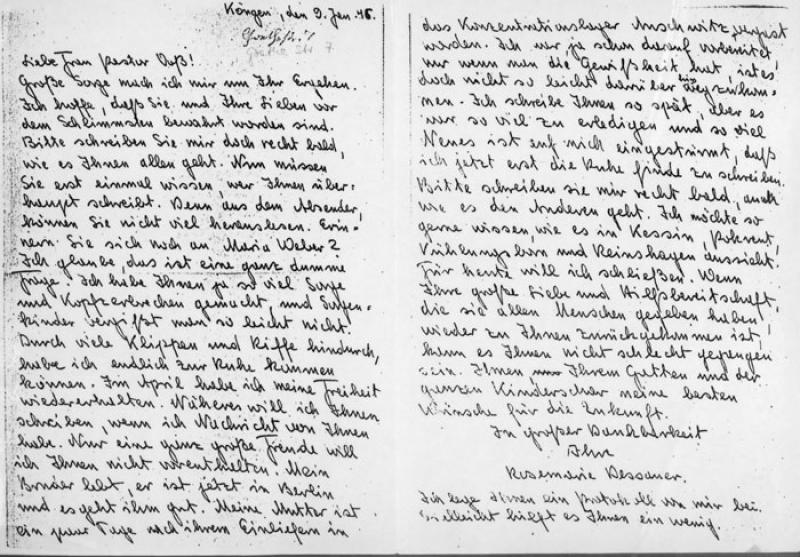 Köngen, den 9. Jan. 46.
Liebe Frau Pastor Ouß!
Große Sorge mach ich mir um Ihr Ergehen.
Ich hoffe, daß Sie und Ihre Lieben vor
dem Schlimmsten bewahrt worden sind.
Bitte schreiben Sie mir doch recht bald,
wie es Ihnen allen geht. Nun müssen
Sie erst einmal wissen, wer Ihnen über-
haupt schreibt. Denn aus dem Absender,
können Sie nicht viel herauslesen. Erin-
nern Sie sich noch an Maria Weber?
Ich glaube, das ist eine ganz dumme
Frage. Ich habe Ihnen ja so viel Sorge
und Kopfzerbrechen gemacht, und Sorgen-
kinder vergißt man so leicht nicht.
Durch viele Klippen und Riffe hindurch,
habe ich endlich zur Ruhe kommen
können. Im April habe ich meine Freiheit
wiedererhalten. Näheres will ich Ihnen
schreiben, wenn ich Nachricht von Ihnen
habe. Nur eine ganz große Freude will
ich Ihnen nicht vorenthalten. Mein
Bruder lebt, er ist jetzt in Berlin
und es geht ihm gut. Meine Mutter ist
ein paar Tage nach ihrem Einliefern in
das Konzentrationslager Auschwitz, vergast
worden. Ich war ja schon darauf vorbereitet,
nur wenn man die Gewißheit hat, ist es
doch nicht so leicht darüber hinwegzukom-
men. Ich schreibe Ihnen so spät, aber es
war so viel zu erledigen und so viel
Neues ist auf mich eingestürmt, daß
ich jetzt erst die Ruhe finde zu schreiben.
Bitte schreiben sie mir recht bald, auch
wie es den Anderen geht. Ich möchte so
gerne wissen, wie es in Kessin, Pokrent,
Kühlungsborn und Reinshagen aussieht.
Für heute will ich schließen. Wenn
Ihre große Liebe und Hilfsbereitschaft,
die sie allen Menschen gegeben haben,
wieder zu Ihnen zurückgekommen ist,
kann es Ihnen nicht schlecht gegangen
sein. Ihnen, Ihrem Gatten und der
ganzen Kinderschar meine besten
Wünsche für die Zukunft.
In großer Dankbarkeit
Ihre
Rosemarie Dessauer.
Ich lege Ihnen ein Protokoll von mir bei.
Vielleicht hilft es Ihnen ein wenig.